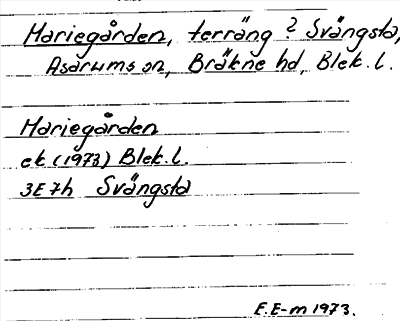 Mariegården, terräng ? Svängsta,
Asarums sn, Bräkne hd, Blek. l.
Mariegården
ek (1973) Blek. l.
3E7h Svängsta
E.E-m 1973.